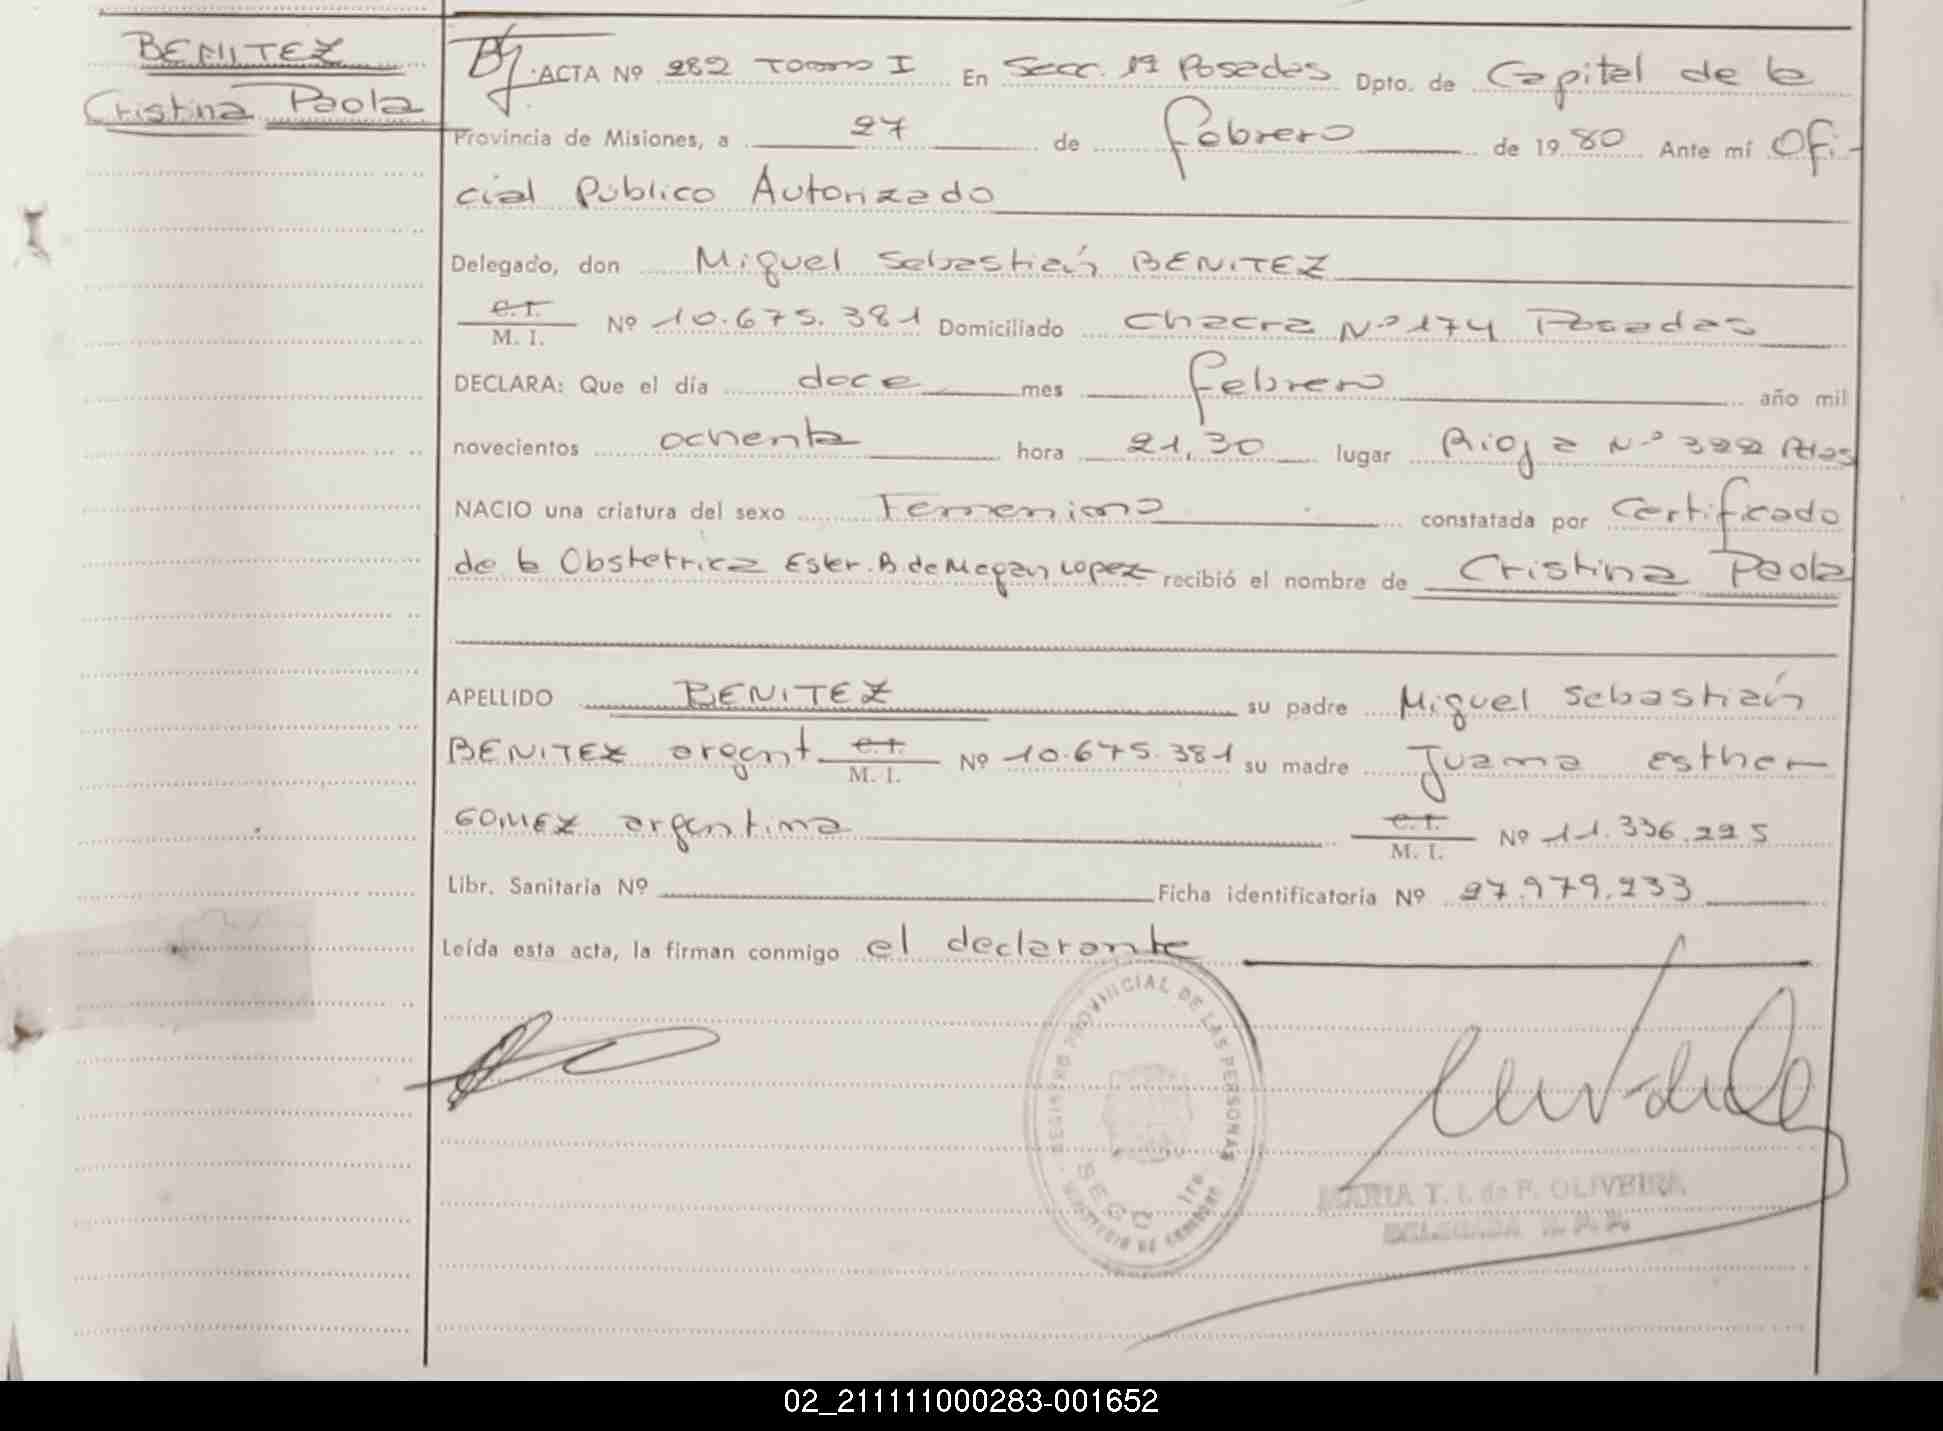 BENITEZ
Cristina Paola
ACTA Nº 282 Tomo I En Secc. 1ª Posadas Dpto. de Capital de la
Provincia de Misiones, a 27 de febrero de 1980 Ante mí Ofi-
cial Público Autorizado
Delegado, don Miguel Sebastián BENITEZ
C.I.
M. I. Nº 10.675.381 Domiciliado Chacra Nº 174 Posadas
DECLARA: Que el día doce mes febrero año mil
novecientos ochenta hora 21,30 lugar Rioja Nº 322 Pdas
NACIO una criatura del sexo Femenino constatada por Certificado
de la Obstetrica Ester. B. de Megan Lopez recibió el nombre de Cristina Paola
APELLIDO BENITEZ su padre Miguel Sebastián
BENITEZ argent C.I.
M. I. Nº 10.675.381 su madre Juana Esther
GOMEZ argentina C.I.
M. I. Nº 11.336.225
Libr. Sanitaria Nº Ficha identificatoria Nº 27.979.233
Leída esta acta, la firman conmigo el declarante
REGISTRO PROVINCIAL DE LAS PERSONAS
SECC. 1ra.
MINISTERIO DE GOBIERNO
MARIA T. I. de F. OLIVEIRA
DELEGADA R. P. P.
02_211111000283-001652